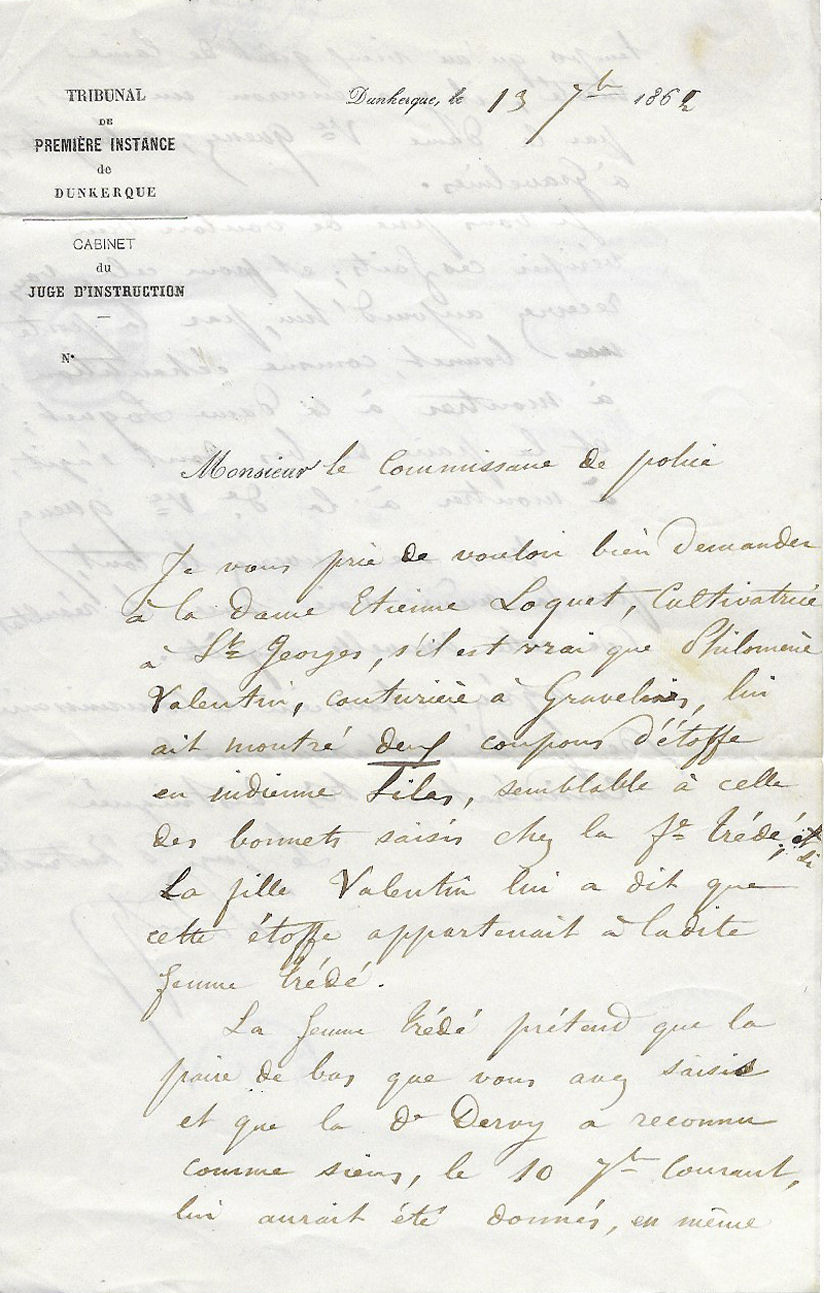 TRIBUNAL
DE
PREMIÈRE INSTANCE
de
DUNKERQUE
CABINET
du
JUGE D'INSTRUCTION
N°
Dunkerque, le 13 7bre 1862
Monsieur le Commissaire de police
Je vous prie de vouloir bien demander
à la dame Etienne Loquet, Cultivatrice
à St Georges, s'il est vrai que Philomène
Valentin, couturière à Gravelines, lui
ait montré deux coupons d'étoffe
en indienne Lilas, semblable à celle
des bonnets saisis chez la fe Trédé, et si
La fille Valentin lui a dit que
cette étoffe appartenait à ladite
femme Trédé.
La femme Trédé prétend que la
paire de bas que vous avez saisis
et que la de Dervy a reconnu
comme siens, le 10 7bre Courant,
lui aurait été donnés, en même